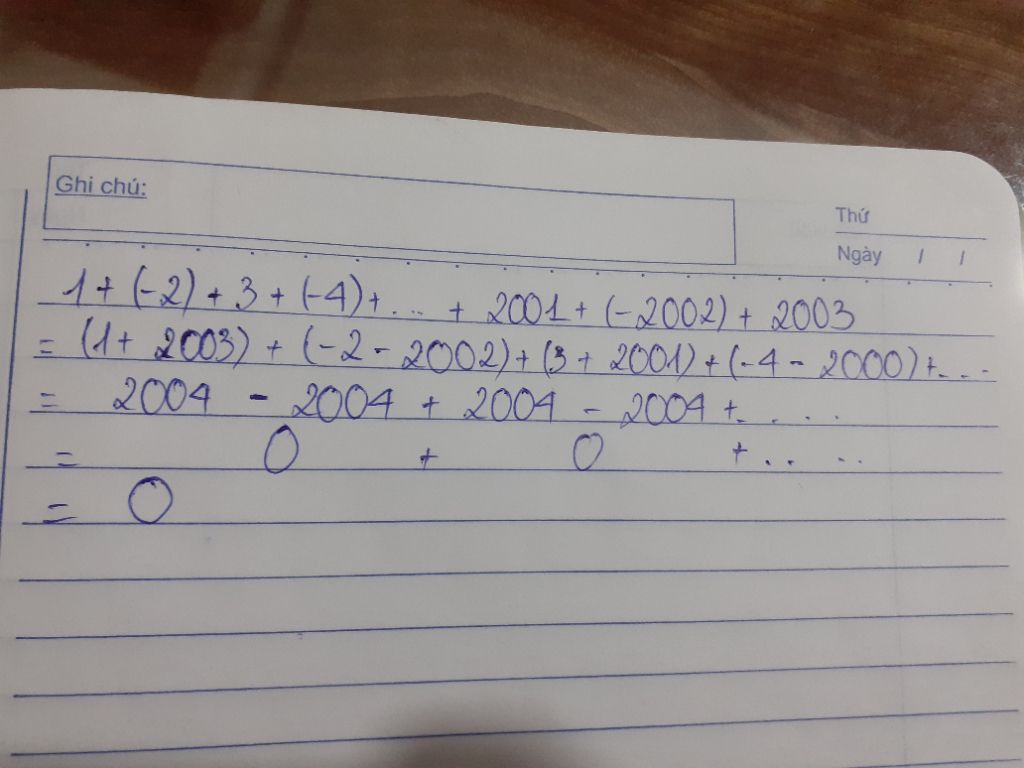 Ghi chú:
Thứ
Ngày / /
1 + (-2) + 3 + (-4) + ... + 2001 + (-2002) + 2003
= (1 + 2003) + (-2 - 2002) + (3 + 2001) + (-4 - 2000) + ...
= 2004 - 2004 + 2004 - 2004 + ....
= 0 + 0 + ....
= 0